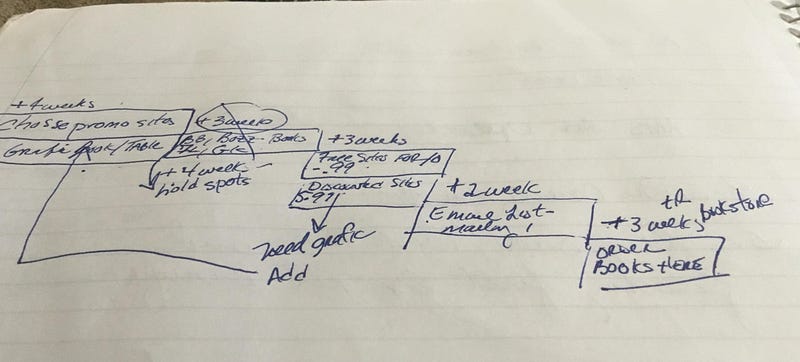 +4weeks
Chosse promo sites
Grafic Book/Table
+3weeks
BB, Books
+4 week
hold spots
+3weeks
Free Sites FOR/O
-.99
Discounted Sites
5.99
need grafic
Add
+2 week
Email List-
+3 weeks, bookstore
ORDER
BOOKS HERE